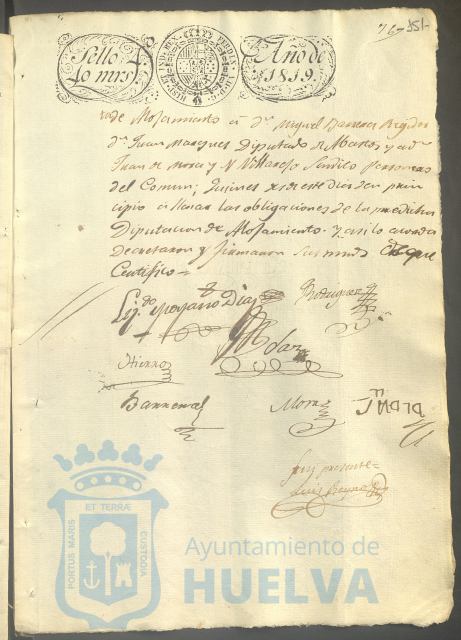 76 - 351-
Sello 4.
40 mrs.
HISPAN. REX
Año de
1819.
de Alojamiento a Dn. Miguel Barreda Regidor
Dn. Juan Marques Diputado de Abastos y a Dn.
Juan de Mora y N Villarejo Sindico Personero
del Comun; Quienes desde este dia den prin
cipio a llenar las obligaciones de la predicha
Diputacion de Alojamiento. Y asi lo acordaron
Decretaron y firmaron Sus mrds de que
Certifico =
Liz.do Moyano Diaz
Rodriguez
Hierro
Barreda
Mora
Fui presente =
Luis
PORTUS MARIS
ET TERRÆ
CUSTODIA
Ayuntamiento de
HUELVA